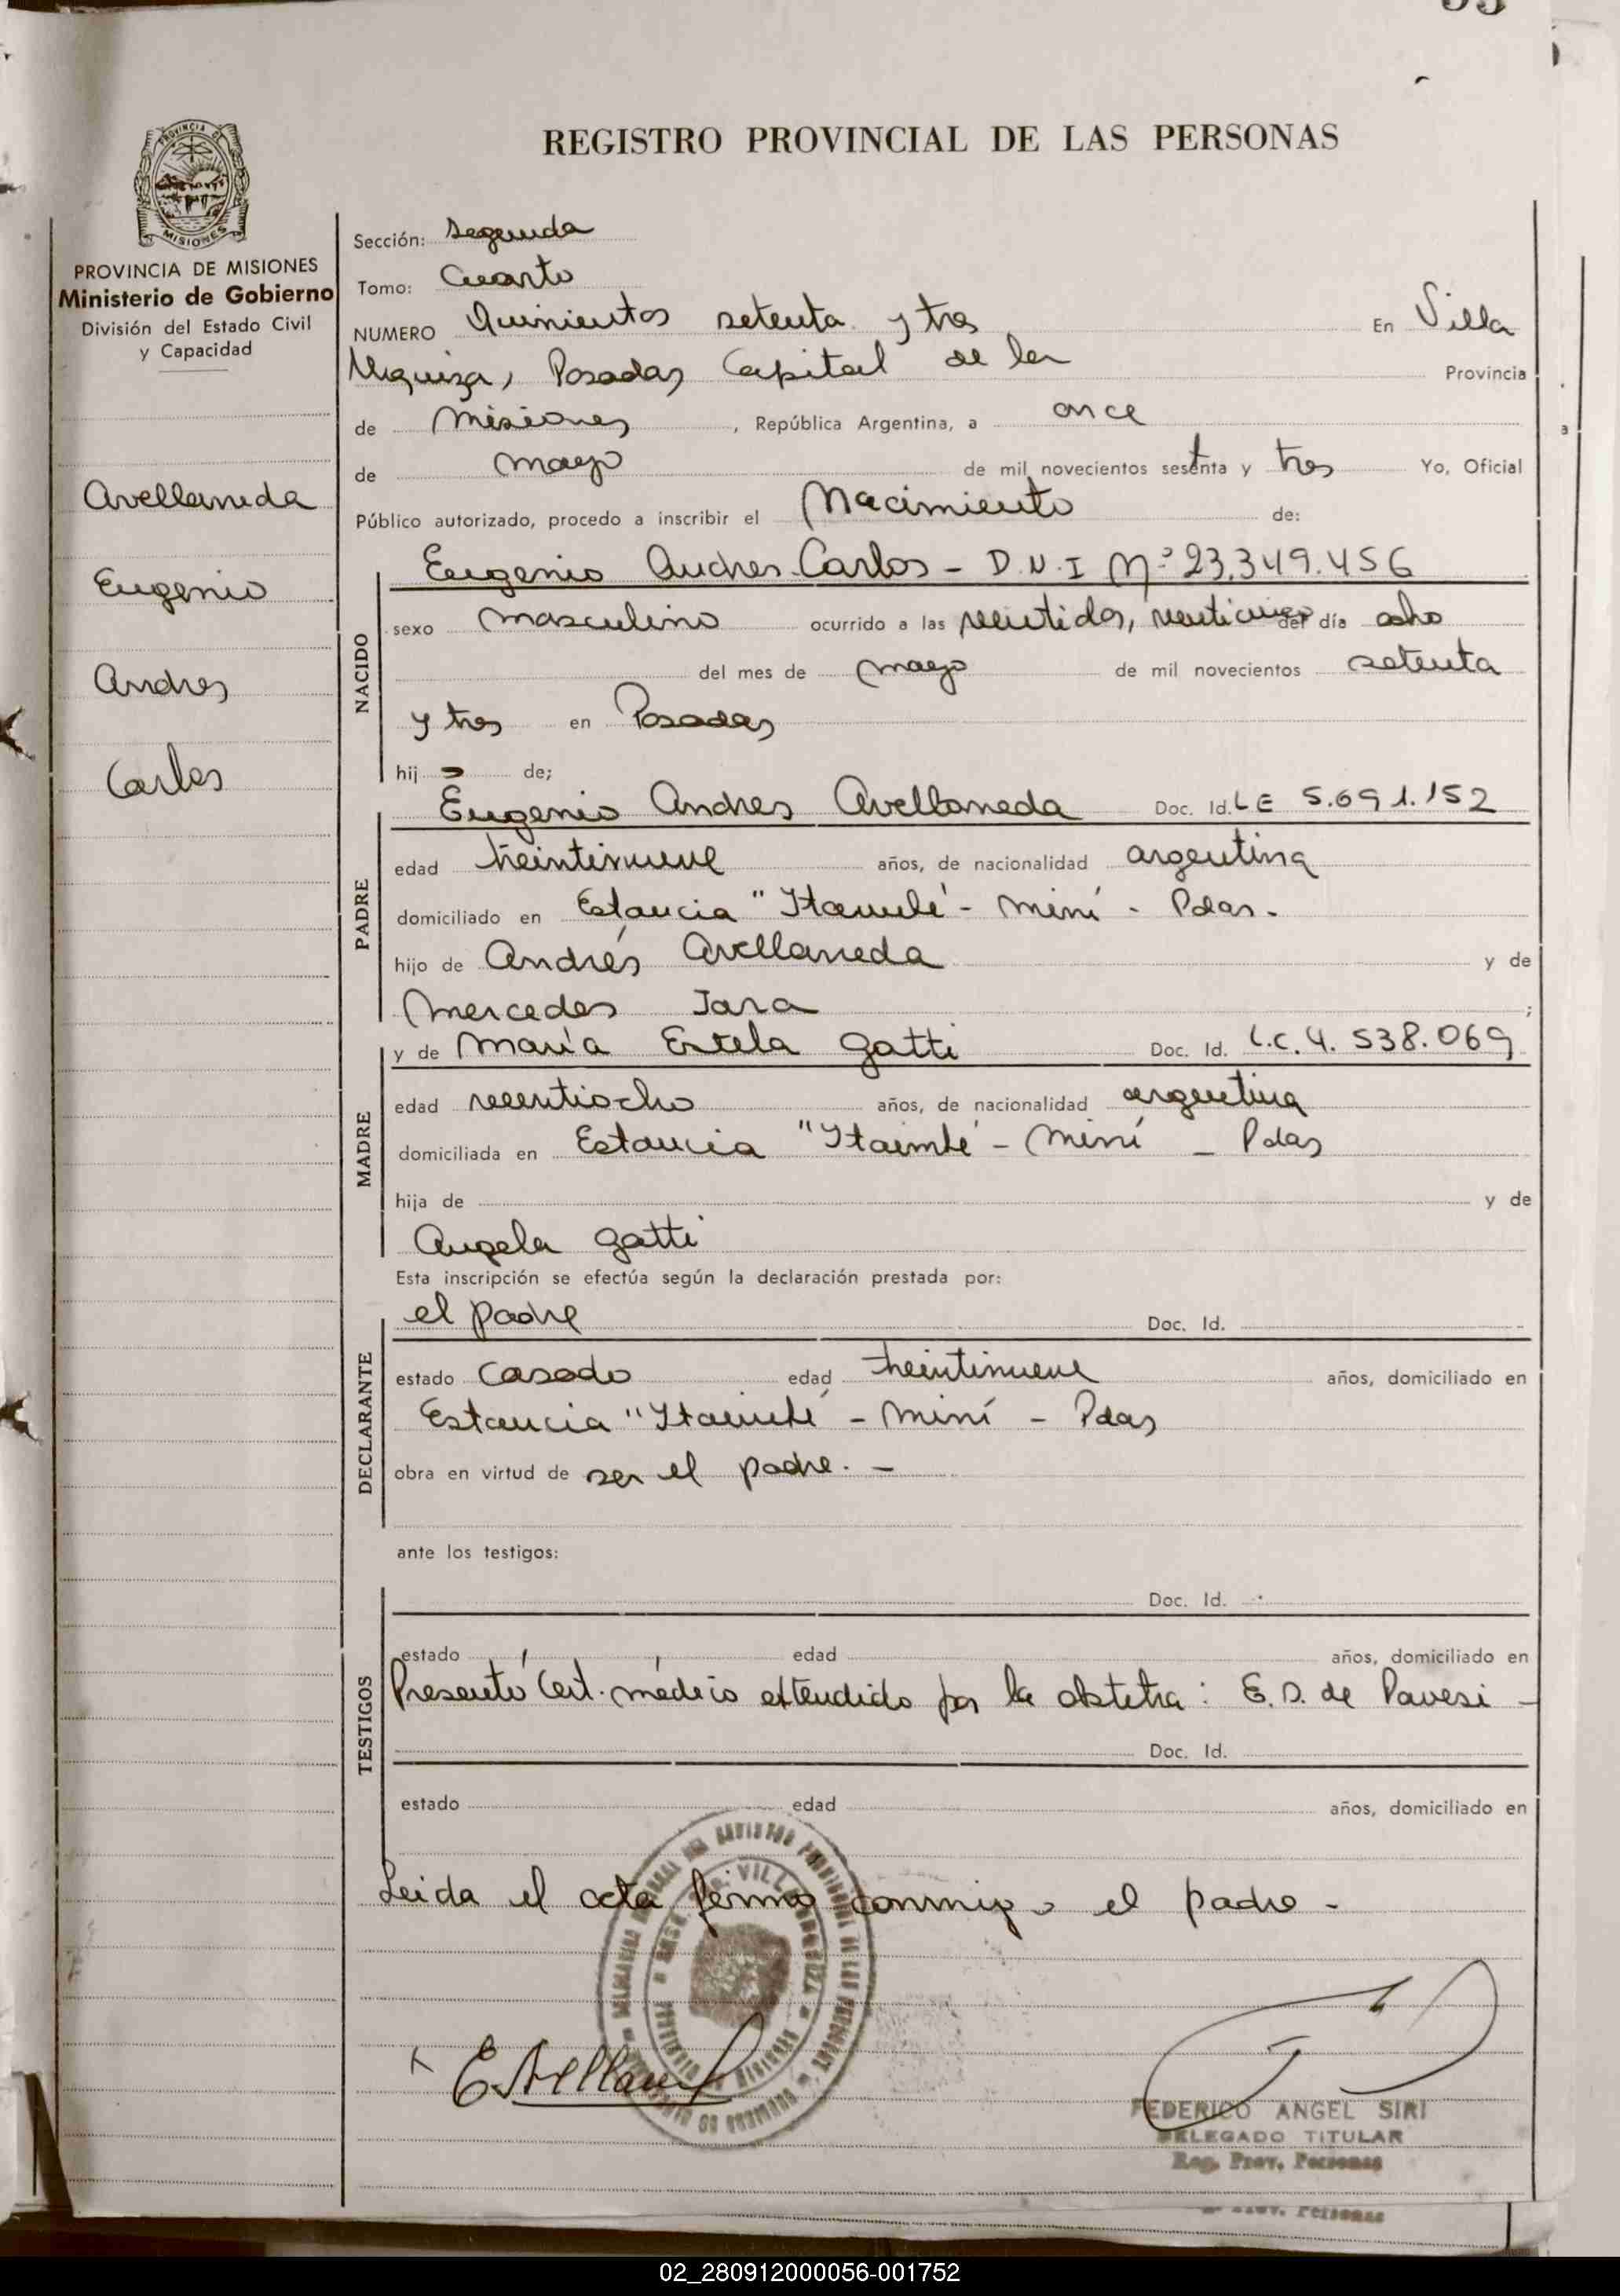 REGISTRO PROVINCIAL DE LAS PERSONAS
PROVINCIA DE MISIONES
Ministerio de Gobierno
División del Estado Civil
y Capacidad
Avellaneda
Eugenio
Andres
Carlos
Sección: Segunda
Tomo: Cuarto
NUMERO Quinientos setenta y tres En Villa
Urquiza, Posadas Capital de la Provincia
de Misiones, República Argentina, a once
de mayo de mil novecientos setenta y tres Yo, Oficial
Público autorizado, procedo a inscribir el Nacimiento de:
Eugenio Andres Carlos - D.N.I Nº 23.349.456
NACIDO
sexo masculino ocurrido a las veintidos, veinticinco del día ocho
del mes de mayo de mil novecientos setenta
y tres en Posadas
hijo de;
PADRE
Eugenio Andres Avellaneda Doc. Id. LE 5.691.152
edad treintinueve años, de nacionalidad argentina
domiciliado en Estancia "Itaembé - miní - Pdas.
hijo de Andrés Avellaneda y de
Mercedes Jara ;
MADRE
y de María Estela Gatti Doc. Id. L.C. 4.538.069
edad veintiocho años, de nacionalidad argentina
domiciliada en Estancia "Itaimbé - Miní - Pdas
hija de y de
Angela Gatti
Esta inscripción se efectúa según la declaración prestada por:
DECLARANTE
el padre Doc. Id.
estado Casado edad treintinueve años, domiciliado en
Estancia "Itaembé - Miní - Pdas
obra en virtud de ser el padre. -
ante los testigos:
TESTIGOS
Doc. Id.
estado edad años, domiciliado en
Presentó Cert. médico extendido por la obstetra: E.D. de Pavesi -
Doc. Id.
estado edad años, domiciliado en
Leida el acta firma conmigo el padre -
E. Avellaneda
FEDERICO ANGEL SIRI
DELEGADO TITULAR
Reg. Prov. Personas
Prov. Personas
02_280912000056-001752